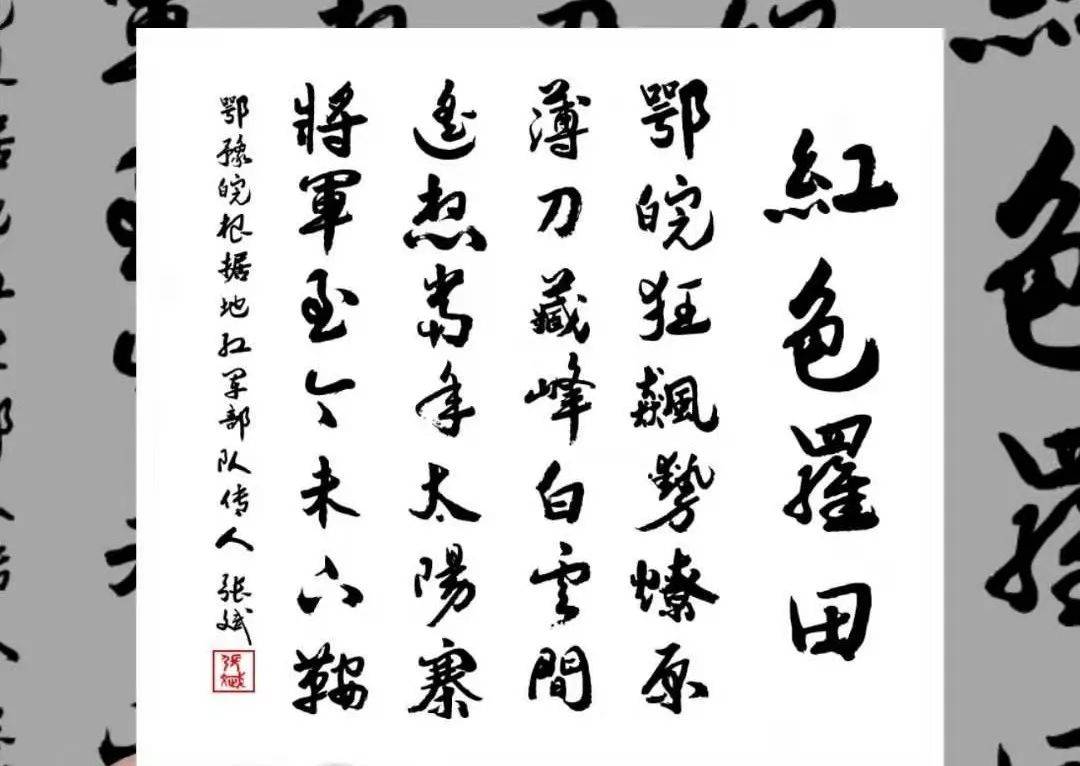 紅色羅田
鄂皖狂飆勢燎原
薄刀藏峰白雲間
遙想當年太陽寨
將軍至今未下鞍
鄂豫皖根据地红军部队传人 张斌
张斌